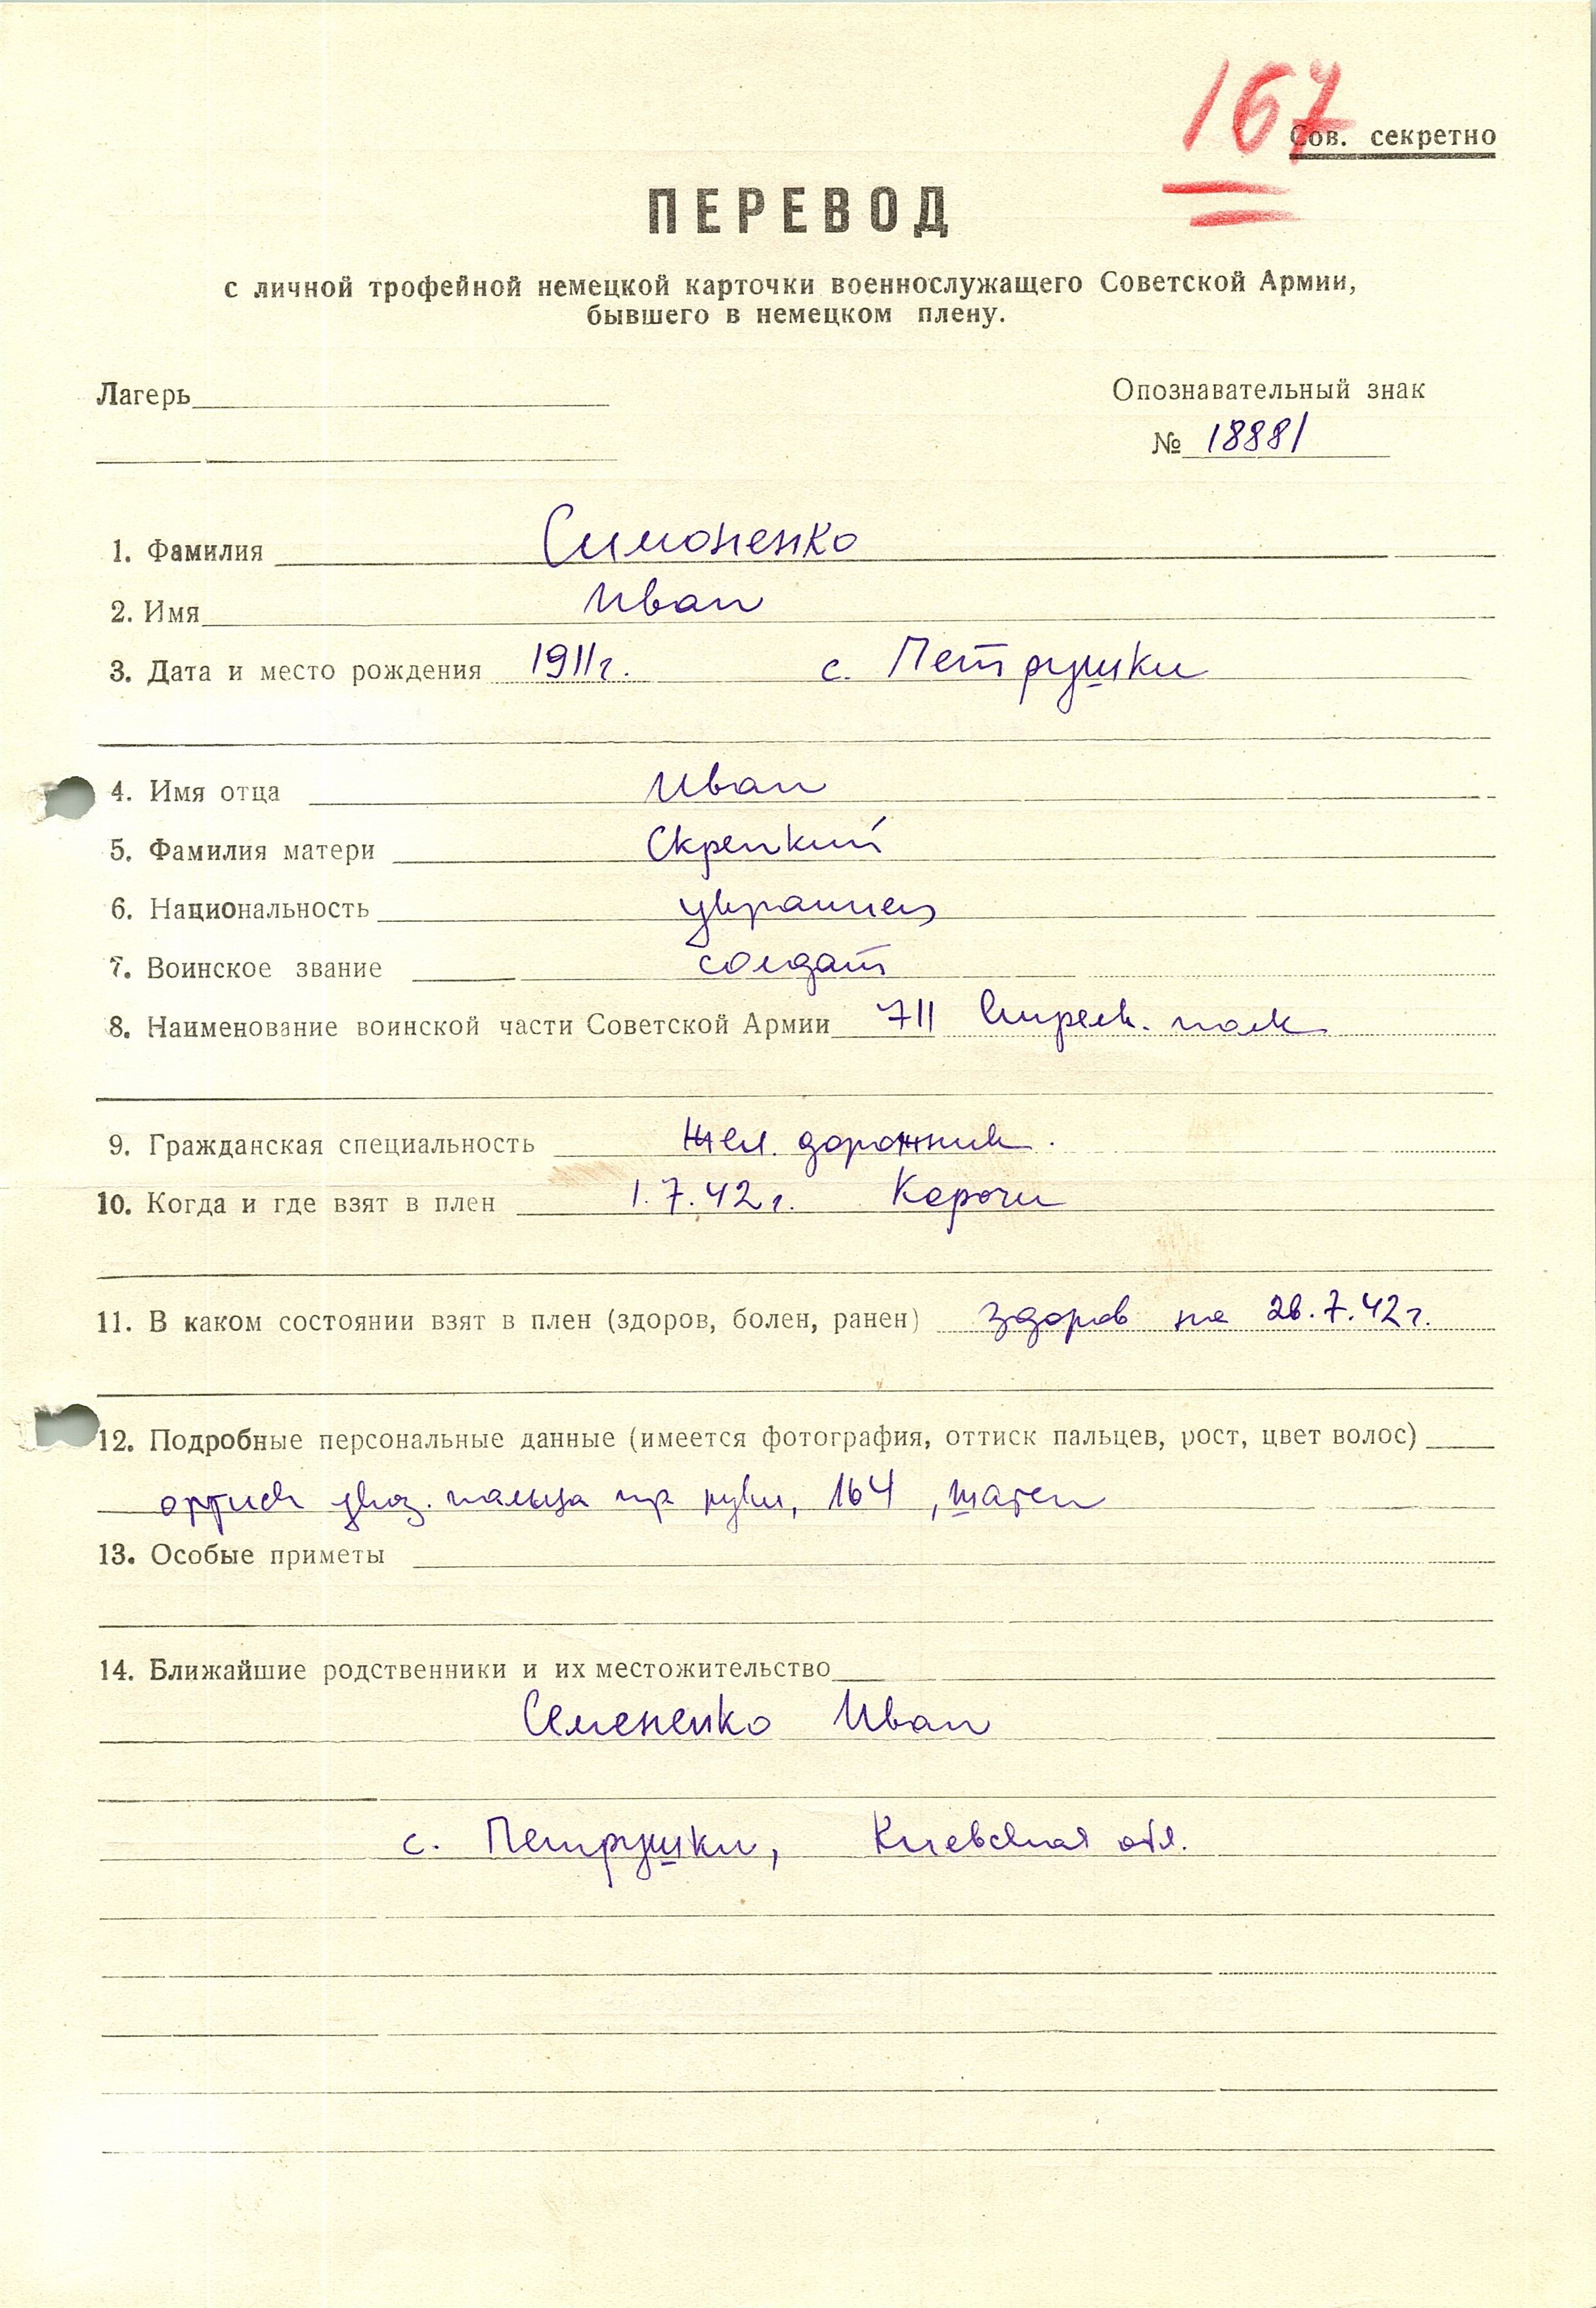 167
Сов. секретно
ПЕРЕВОД
с личной трофейной немецкой карточки военнослужащего Советской Армии,
бывшего в немецком плену.
Лагерь
Опознавательный знак
№ 18881
1. Фамилия Симоненко
2. Имя Иван
3. Дата и место рождения 1911г. с. Петрушки
4. Имя отца Иван
5. Фамилия матери Скрепкий
6. Национальность украинец
7. Воинское звание солдат
8. Наименование воинской части Советской Армии 711 стрелк. полк
9. Гражданская специальность жел. дорожник.
10. Когда и где взят в плен 1.7.42г. Корочи
11. В каком состоянии взят в плен (здоров, болен, ранен) здоров на 28.7.42г.
12. Подробные персональные данные (имеется фотография, оттиск пальцев, рост, цвет волос)
оттиск указ. пальца пр руки, 164, шатен
13. Особые приметы
14. Ближайшие родственники и их местожительство
Семененко Иван
с. Петрушки, Киевская обл.